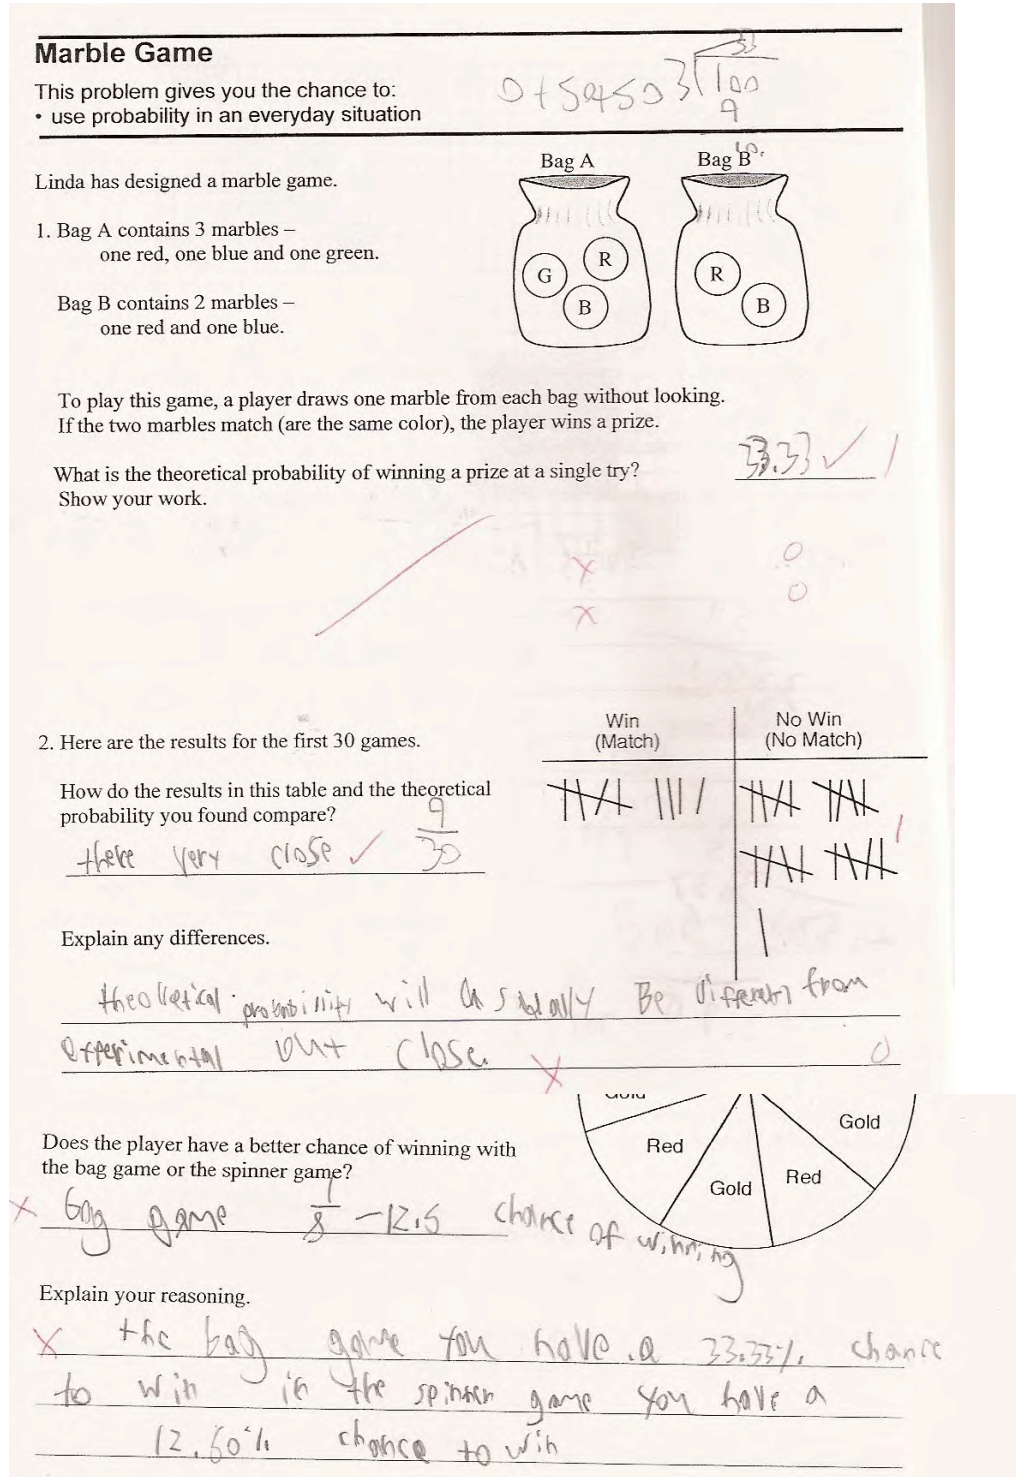 Marble Game
This problem gives you the chance to:
• use probability in an everyday situation
33
3 100
9
Linda has designed a marble game.
Bag A
Bag B
1. Bag A contains 3 marbles –
one red, one blue and one green.
G R B
R B
Bag B contains 2 marbles –
one red and one blue.
To play this game, a player draws one marble from each bag without looking.
If the two marbles match (are the same color), the player wins a prize.
What is the theoretical probability of winning a prize at a single try?
33.33 ✓ 1
Show your work.
x 0
x 0
Win
(Match)
No Win
(No Match)
2. Here are the results for the first 30 games.
How do the results in this table and the theoretical
probability you found compare?
there very close ✓ 9/30
1
Explain any differences.
theoretical probability will usually Be different from
experimental but close. x 0
Gold
Red
Gold
Red
Gold
Does the player have a better chance of winning with
the bag game or the spinner game?
x bag game 1/8 – 12.5 chance of winning
Explain your reasoning.
x the bag game you have a 33.33% chance
to win in the spinner game you have a
12.50% chance to win